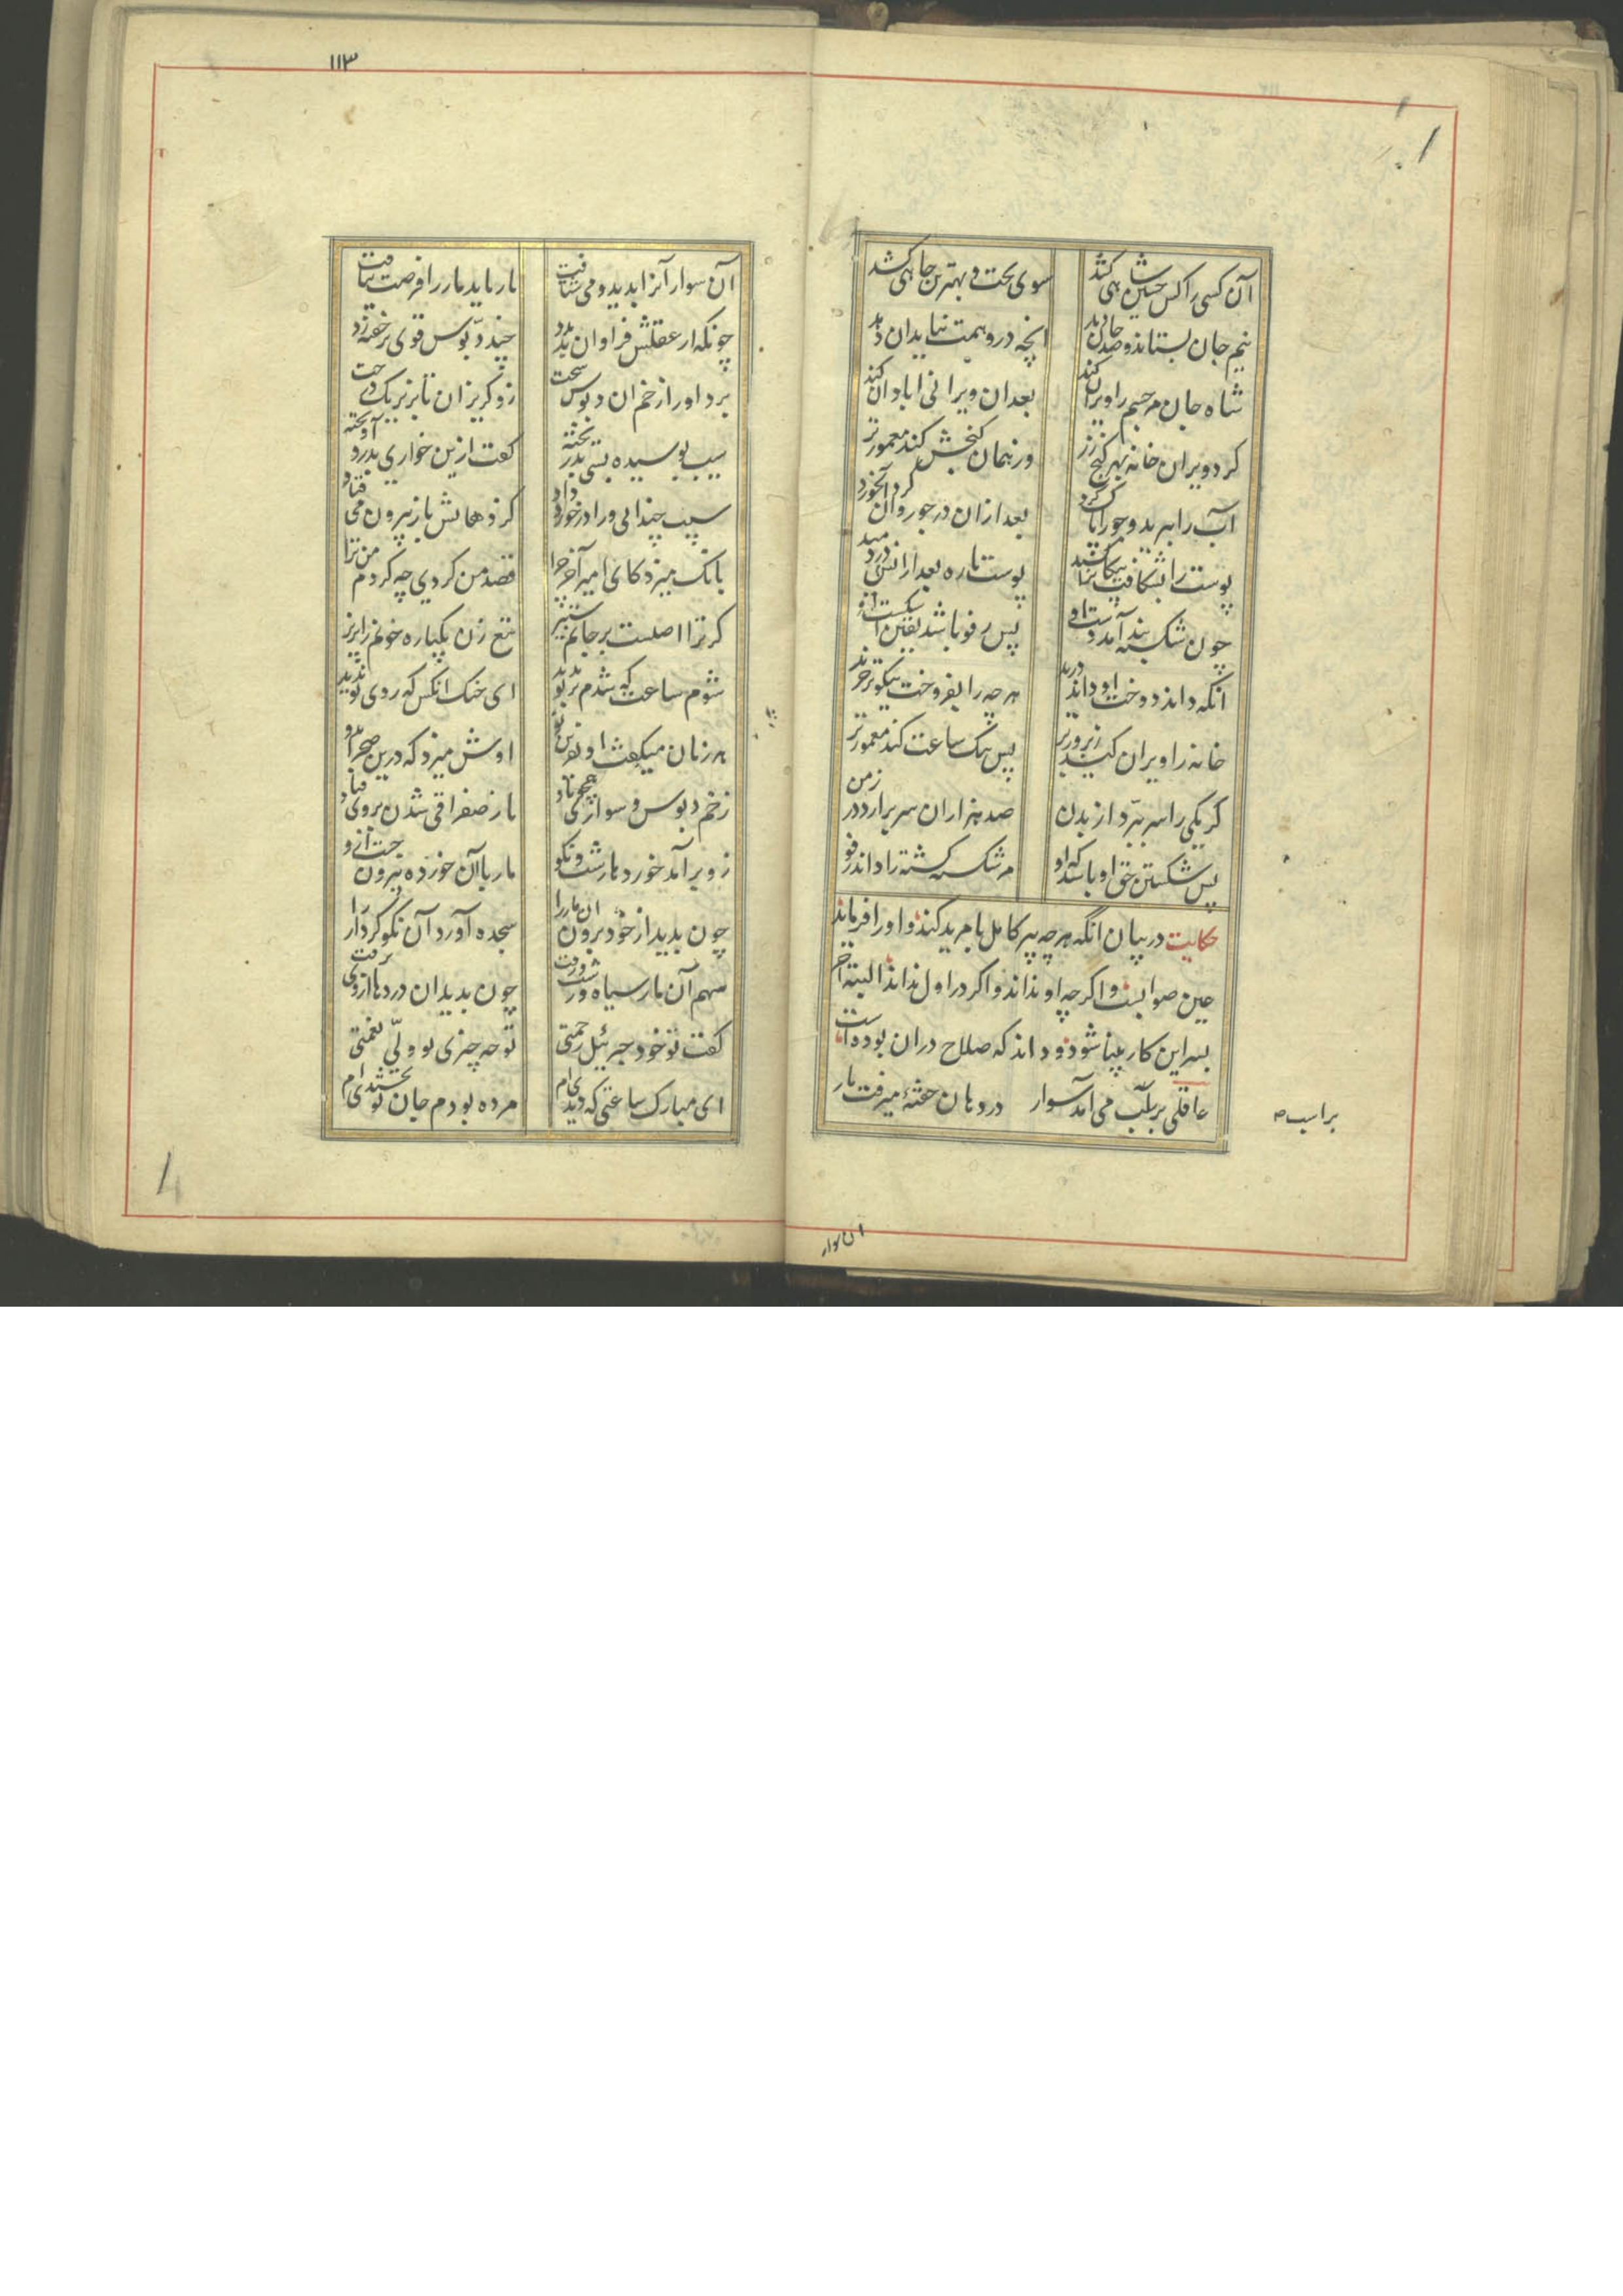 آن کسی را کش چنین شاهی کشد سوی تخت و بهترین جاهی کشد
نیم جان بستاند و صد جان دهد انچه در وهمت نیاید ان دهد
شاه جان مر جسم را ویران کند بعد ان ویرانی اباد ان کند
کرد ویران خانه بهر کنج زر وز همان کنجش کند معمورتر
آب را ببرید و جو را پاک کرد بعد ازان در جو روان کرد آبخورد
پوست را بشکافت پیکان را کشید پوست تازه بعد ازانش بر دمید
چون شکسته بند آمد دست او پس رفو باشد یقین اشکست او
انکه داند دوخت او داند درید هر چه را بفروخت نیکوتر خرید
خانه را ویران کند زیر و زبر پس بیک ساعت کند معمورتر
کر یکی را سر ببرد از بدن صد هزاران سر برارد در زمن
پس شکستن حق او باشد که او مر شکسته کشته را داند رفو
حکایت در بیان انکه هر چه پیر کامل با مرید کند و او را فرماند
عین صوابست و اکر چه او نداند و اکر در اول نداند البته آخر
بسر این کار بینا شود و داند که صلاح دران بوده است
عاقلی بر اسب می آمد سوار در دهان خفتهٔ میرفت مار
بر اسب صح
ان سوار
١١٣
آن سوار آنرا بدید و می شتافت تا رهاید مار را فرصت نیافت
چونکه از عقلش فراوان بد مدد چند دبوس قوی بر خفته زد
برد او را زخم ان دبوس سخت زو کریزان تا بزیر یک درخت
سیب بوسیده بسی بد ریخته کفت ازین خور ای بدرد آویخته
سیب چندانی ورا در خورد داد کز دهانش باز بیرون می فتاد
بانک میزد کای امیر آخر چرا قصد من کردی چه کردم من ترا
کر ترا اصلست بر جانم ستیز تیغ زن یکباره خونم را بریز
شوم ساعت که شدم بر تو بدید ای خنک انکس که روی تو ندید
هر زمان میکفت او نفرین نو اوش میزد که درین صحرا بدو
زخم دبوس و سواری همچو باد تا ز صفرا قی شدن بر وی فتاد
زو بر آمد خورده ها زشت و نکو مار با آن خورده بیرون جست ازو
چون بدید از خود برون ان مار را سجده آورد آن نکو کردار را
سهم آن مار سیاه زشت و زفت چون بدید ان دردها از وی برفت
کفت تو خود جبرئیل رحمتی تو چه چیزی تو ولی نعمتی
ای مبارک ساعتی که دیدی ام مرده بودم جان تو بخشیدی ام